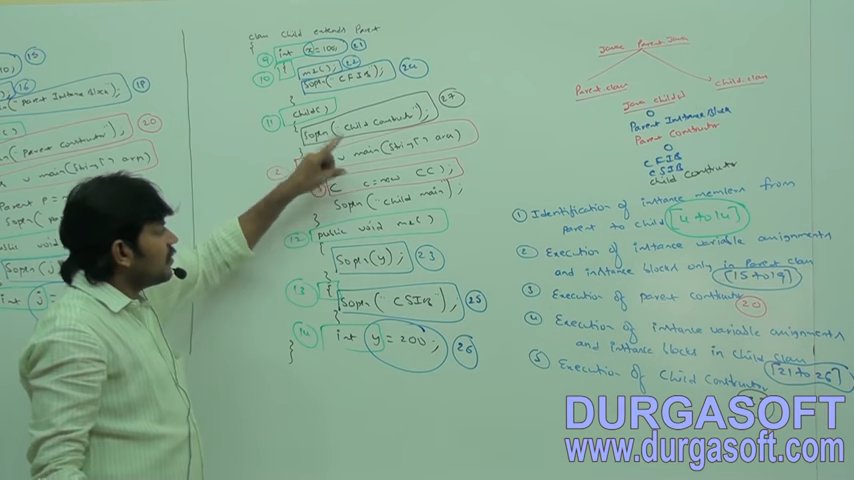 10;
15
16
n("Parent Instance Block");
19
n("Parent constructor");
20
v main(String[] arg)
Parent p =
public void
Sopln(j
int j =
class Child extends Parent
{
9 int x=100; 21
10 { m2(); 22
Sopln("CFIB"); 24
}
11 Child()
{ Sopln("Child Constructor"); 27
}
2 v main(String[] arg)
3 c=new CC();
Sopln("Child main);
}
12 public void m2()
{
Sopln(y); 23
}
13 {
Sopln("CSIB"); 25
}
14 int y=200; 26
}
Javac Parent.Java
Parent.class
Child.class
Java Child
0
Parent Instance Block
Parent Constructor
0
CFIB
CSIB
Child Constructor
1 Identification of instance members from
parent to child [4 to 14]
2 Execution of instance variable assignments
and instance blocks only in Parent class
[15 to 19]
3 Execution of parent constructor
20
4 Execution of instance variable assignments
and instance blocks in Child class
[21 to 26]
5 Execution of Child Constructor
DURGASOFT
www.durgasoft.com